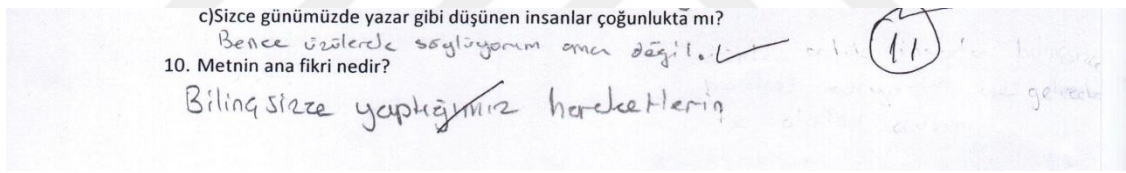 c)Sizce günümüzde yazar gibi düşünen insanlar çoğunlukta mı?
Bence üzülerek söylüyorum ama değil.
11
10. Metnin ana fikri nedir?
Bilinçsizce yaptığımız hareketlerin